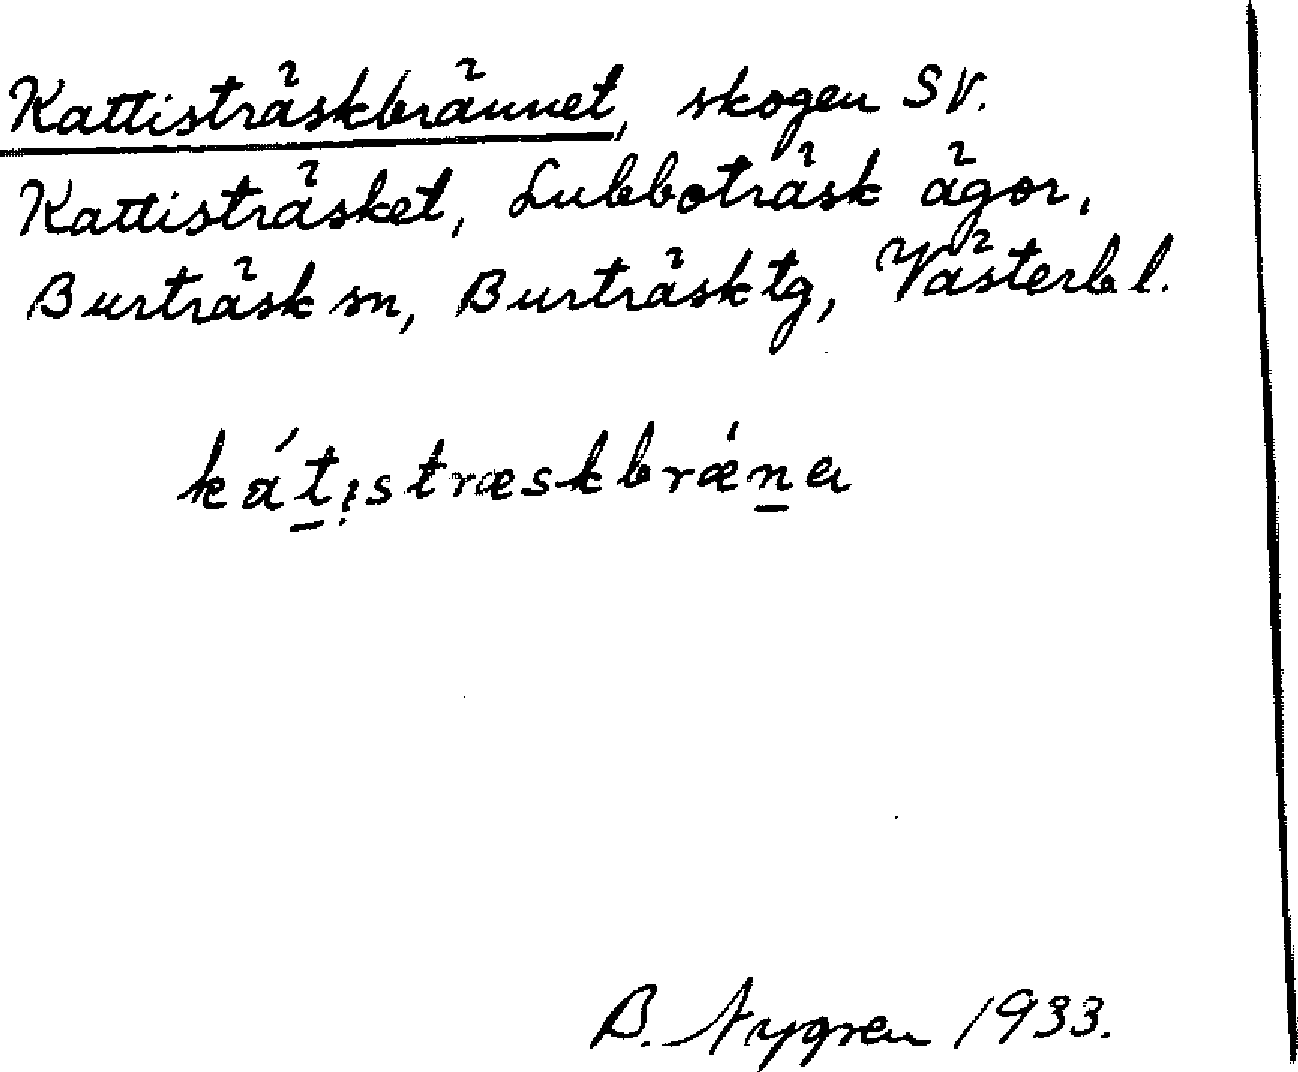 Kattisträskbrännet, skogen SV.
Kattisträsket, Lubboträsk ägor,
Burträsk sn, Burträsk tg, Västerb l.
kát̠ı̣stræskbrǽn̠a
B. Nygren 1933.